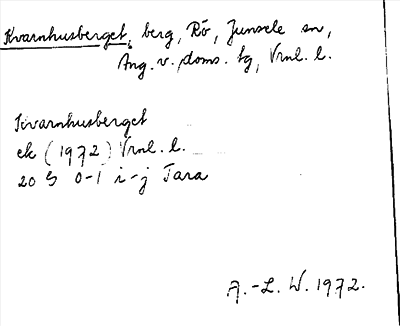 Kvarnhusberget, berg, Rö, Junsele sn,
Ång. v. doms. tg, Vrnl. l.
Kvarnhusberget
ek (1972) Vrnl. l.
20 G 0-1 i-j Tara
A.-L. W. 1972.